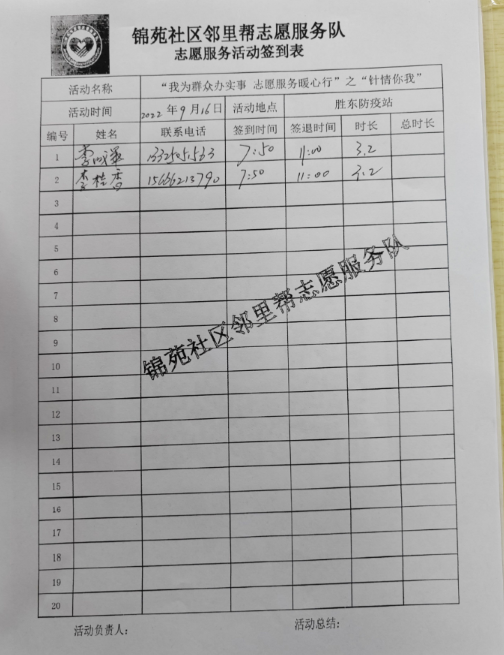 锦苑社区邻里帮志愿服务队
志愿服务活动签到表
活动名称 “我为群众办实事 志愿服务暖心行”之“针情你我”
活动时间 2022年9月16日 活动地点 胜东防疫站
编号 姓名 联系电话 签到时间 签退时间 时长 总时长
1 李 7:50 11:00 3.2
2 李桂香 15666213790 7:50 11:00 3.2
3
4
5
6
7
8
9
10
11
12
13
14
15
16
17
18
19
20
锦苑社区邻里帮志愿服务队
活动负责人： 活动总结：